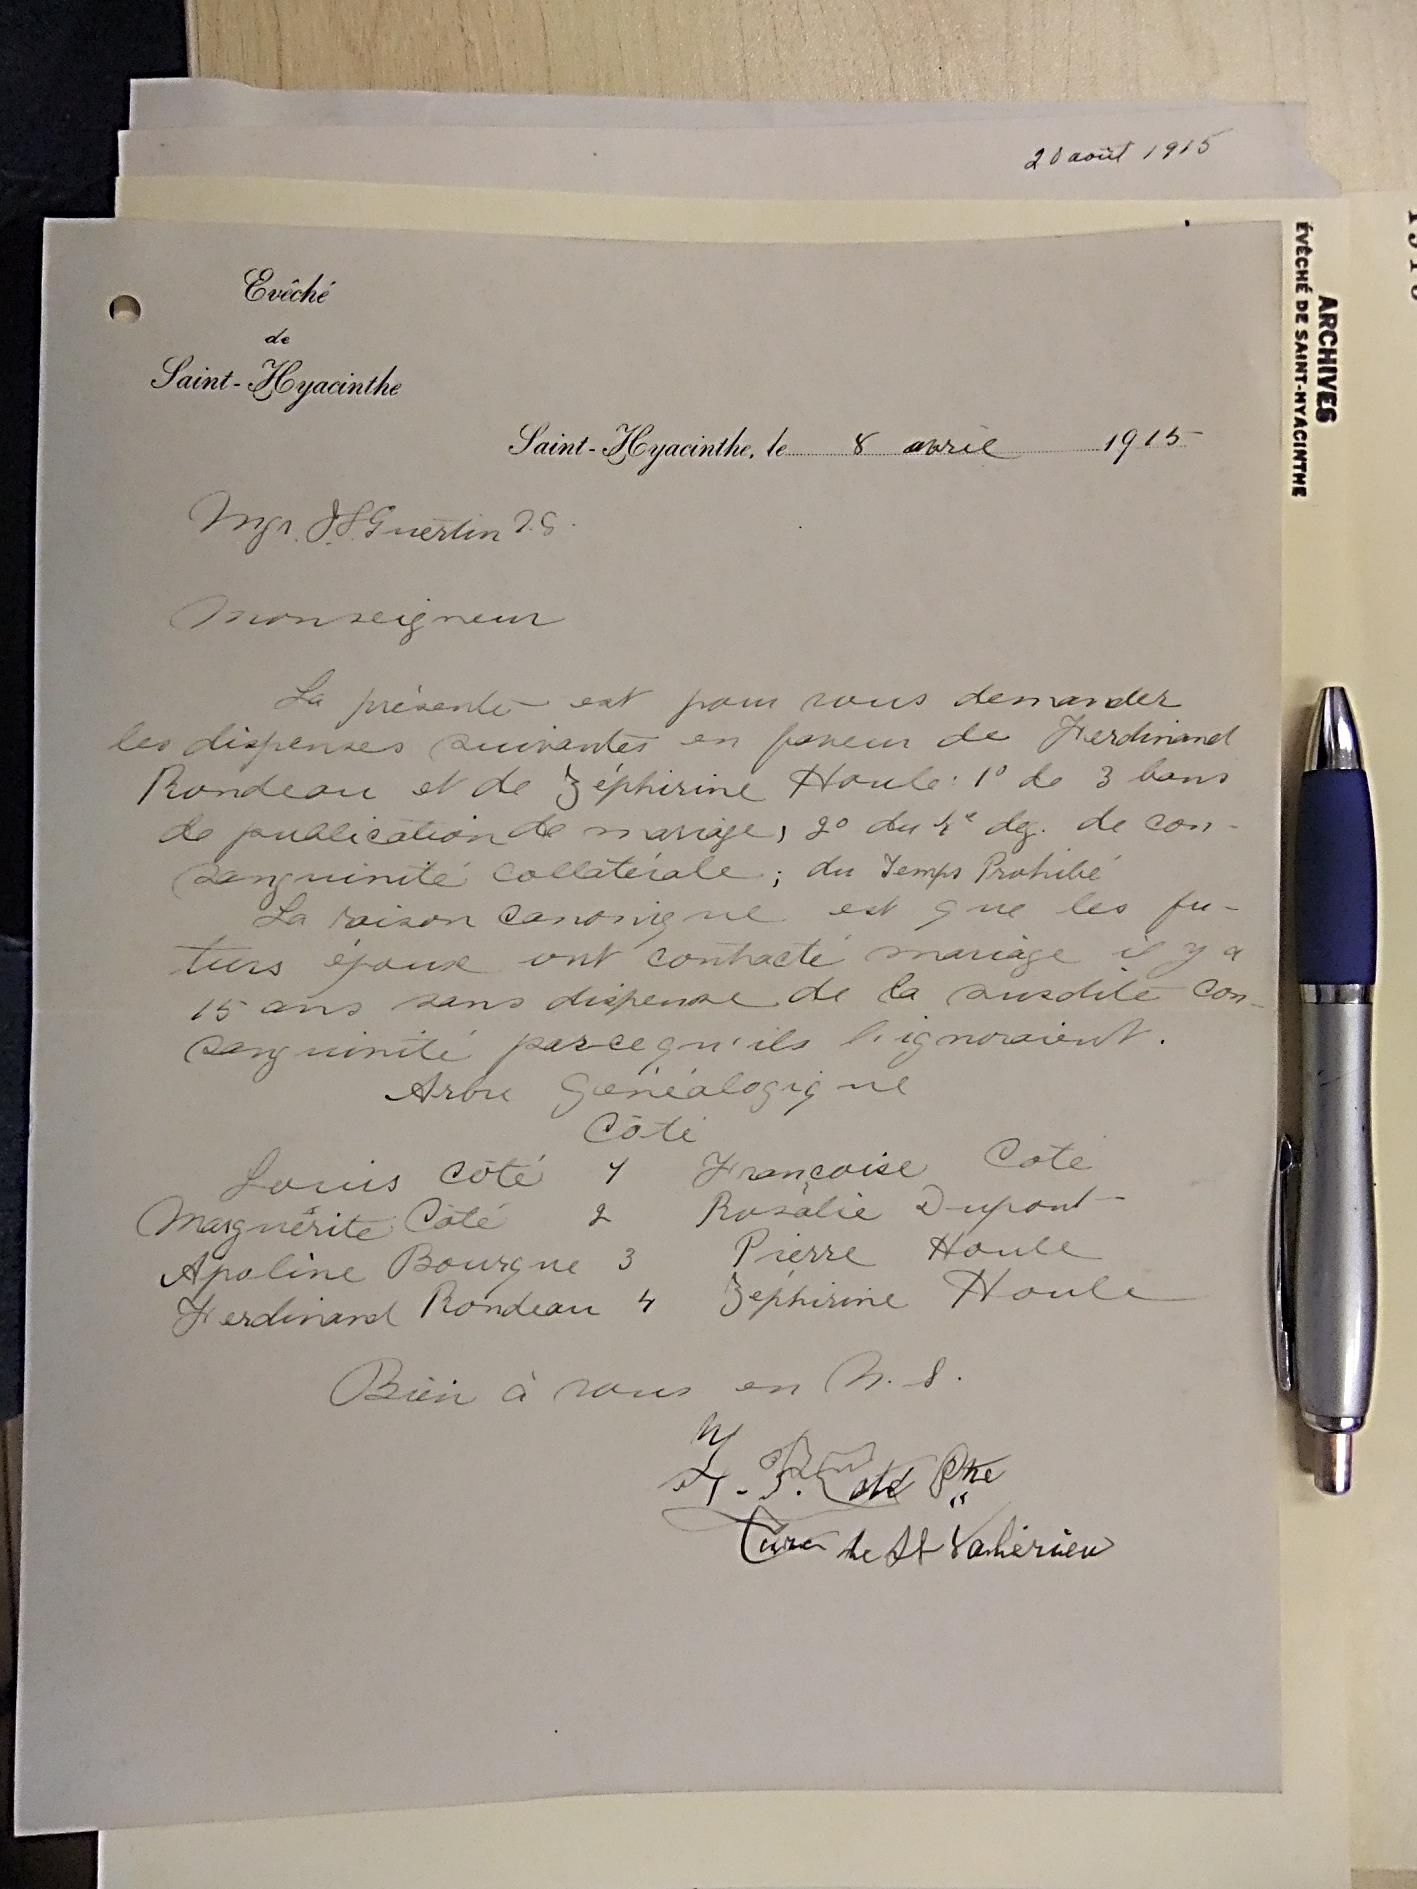 20 août 1915
ARCHIVES
ÉVÊCHÉ DE SAINT-HYACINTHE
Evêché
de
Saint-Hyacinthe
Saint-Hyacinthe, le 8 avril 1915
Mgr. Guertin
Monseigneur
La présente est pour vous demander
les dispenses suivantes en faveur de Ferdinand
Rondeau et de Zéphirine Houle: 1º de 3 bans
de publication de mariage, 2º du 4e deg. de con-
sanguinité collatérale; du Temps Prohibé
La raison canonique est que les fu-
turs époux ont contracté mariage il y a
15 ans sans dispense de la susdite con-
sanguinité parcequ'ils l'ignoraient.
Arbre Généalogique
Côté
Louis Côté 1 Françoise Coté
Marguérite Côté 2 Rosalie Dupont
Apoline Bourque 3 Pierre Houle
Ferdinand Rondeau 4 Zéphirine Houle
Bien à vous en N. S.
Ptre
Curé de St Valérien